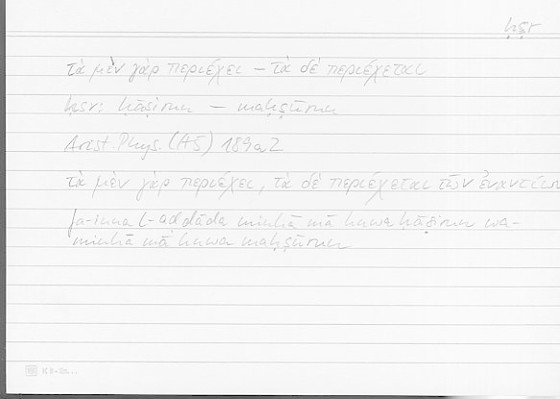 ḥṣr
τὰ μὲν γὰρ περιέχει – τὰ δὲ περιέχεται
ḥṣr: ḥāṣirun – maḥṣūrun
Arist. Phys. (A5) 189a2
τὰ μὲν γὰρ περιέχει, τὰ δὲ περιέχεται τῶν ἐναντίων
fa-inna l-aḍdāda minhā mā huwa ḥāṣirun wa-
minhā mā huwa maḥṣūrun